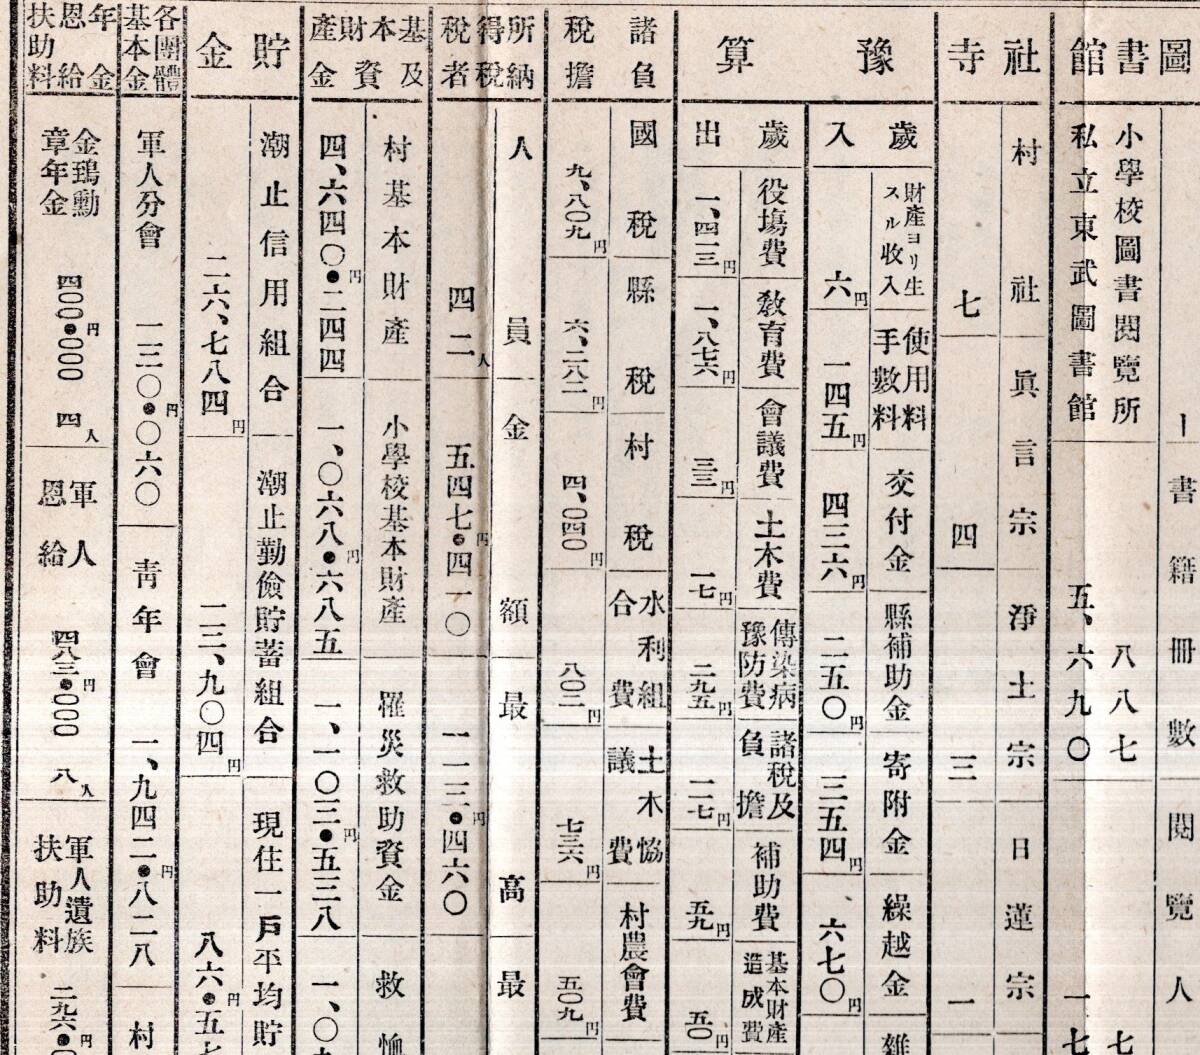 圖書館
ー書籍冊數閱覽人
小學校圖書閱覽所 八八七 七
私立東武圖書館 五、六九〇 一七
社寺
村社 眞言宗 淨土宗 日蓮宗
七 四 三 一
豫算
歲入
財產ヨリ生スル收入 使用料手數料 交付金 縣補助金 寄附金 繰越金 雜
六円 一四五円 四三六円 二五〇円 三五四円 六七〇円
歲出
役塲費 敎育費 會議費 土木費 傳染病豫防費 諸稅及負擔 補助費 基本財產造成費
一、四三一円 一、八七六円 三三円 一七円 二九五円 二一七円 五九円 五〇
諸負稅擔
國稅 縣稅 村稅 水利組合費 土木協議費 村農會費
九、八〇九円 六、二八二円 四、〇四〇円 八〇三円 七三六円 五〇九円
所得稅納稅者
人員 金額 最高 最
四二人 五四七円・四一〇 一一三円・四六〇
基本財產及資金
村基本財產 小學校基本財產 罹災救助資金 救恤
四、六四〇円・二四四 一、〇六八円・六八五 一、一〇三円・五三八 一、〇
貯金
潮止信用組合 潮止勤儉貯蓄組合 現住戶平均貯
二六、七八四円 一二、九〇四円 八六円・五七
各團體基本金
軍人分會 一三〇円・〇六〇 靑年會 一、九四二円・八二八 村
年金恩給扶助料
金鵄勳章年金 四〇〇円・〇〇〇 四人 軍人恩給 四八三円・〇〇〇 八人 軍人遺族扶助料 二九六円・